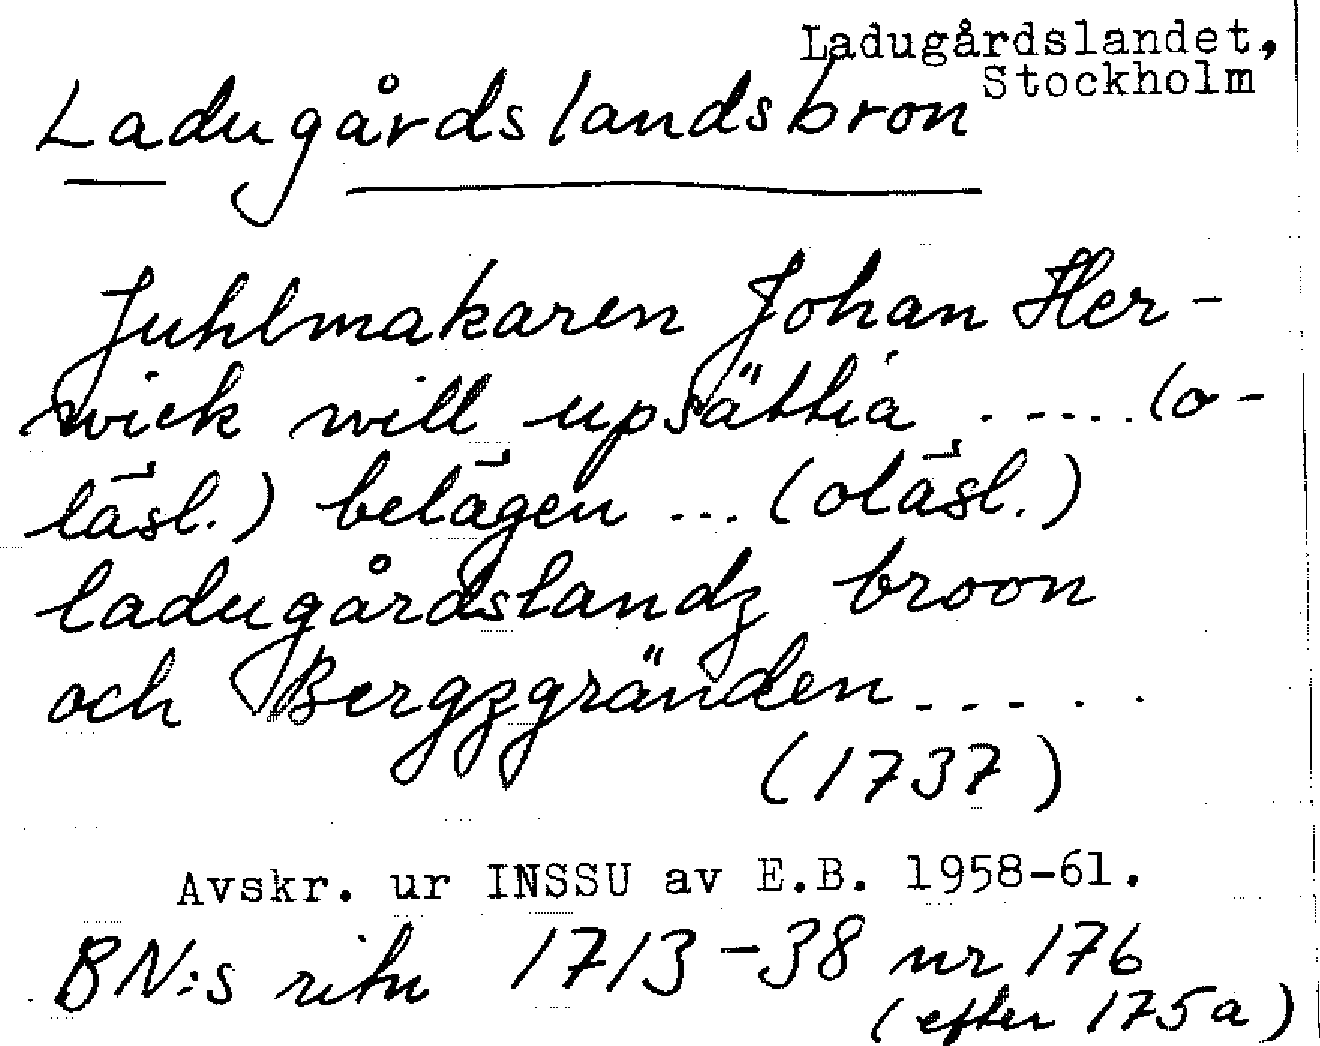 Ladugårdslandet,
Stockholm
Ladugårdslandsbron
Juhlmakaren Johan Her-
wick will upsättia ..... (o-
läsl.) belägen ... (oläsl.)
ladugårdslandz broon
och Bergzgränden.....
(1737)
Avskr. ur INSSU av E.B. 1958-61.
BN:s ritn 1713-38 nr 176
(efter 175a)